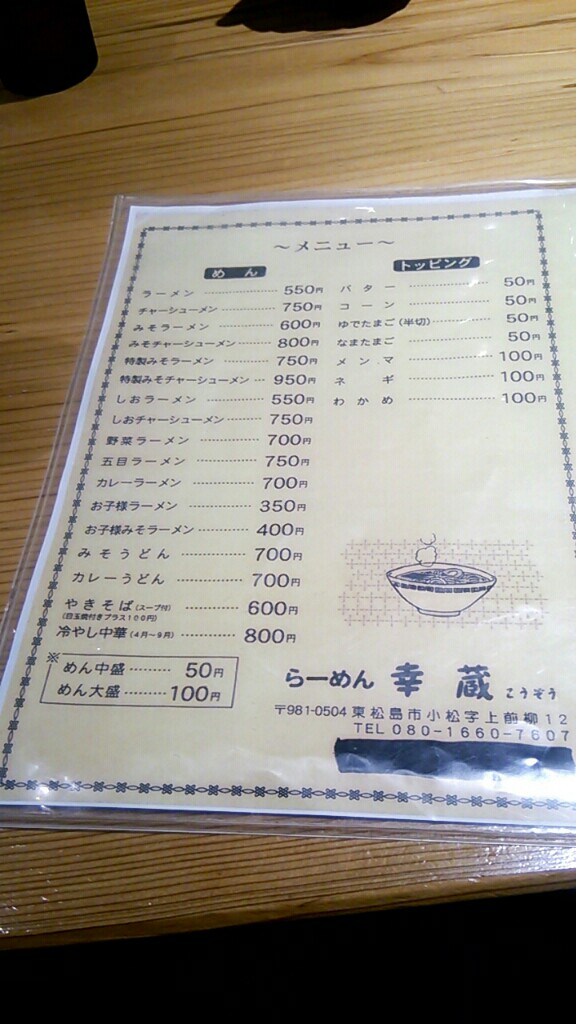 ～メニュー～
めん
ラーメン 550円
チャーシューメン 750円
みそラーメン 600円
みそチャーシューメン 800円
特製みそラーメン 750円
特製みそチャーシューメン 950円
しおラーメン 550円
しおチャーシューメン 750円
野菜ラーメン 700円
五目ラーメン 750円
カレーラーメン 700円
お子様ラーメン 350円
お子様みそラーメン 400円
みそうどん 700円
カレーうどん 700円
やきそば(スープ付) 600円
(目玉焼付きプラス100円)
冷やし中華(4月～9月) 800円
※
めん中盛 50円
めん大盛 100円
トッピング
バター 50円
コーン 50円
ゆでたまご(半切) 50円
なまたまご 50円
メンマ 100円
ネギ 100円
わかめ 100円
らーめん 幸蔵 こうぞう
〒981-0504 東松島市小松字上前柳12
TEL 080-1660-7607